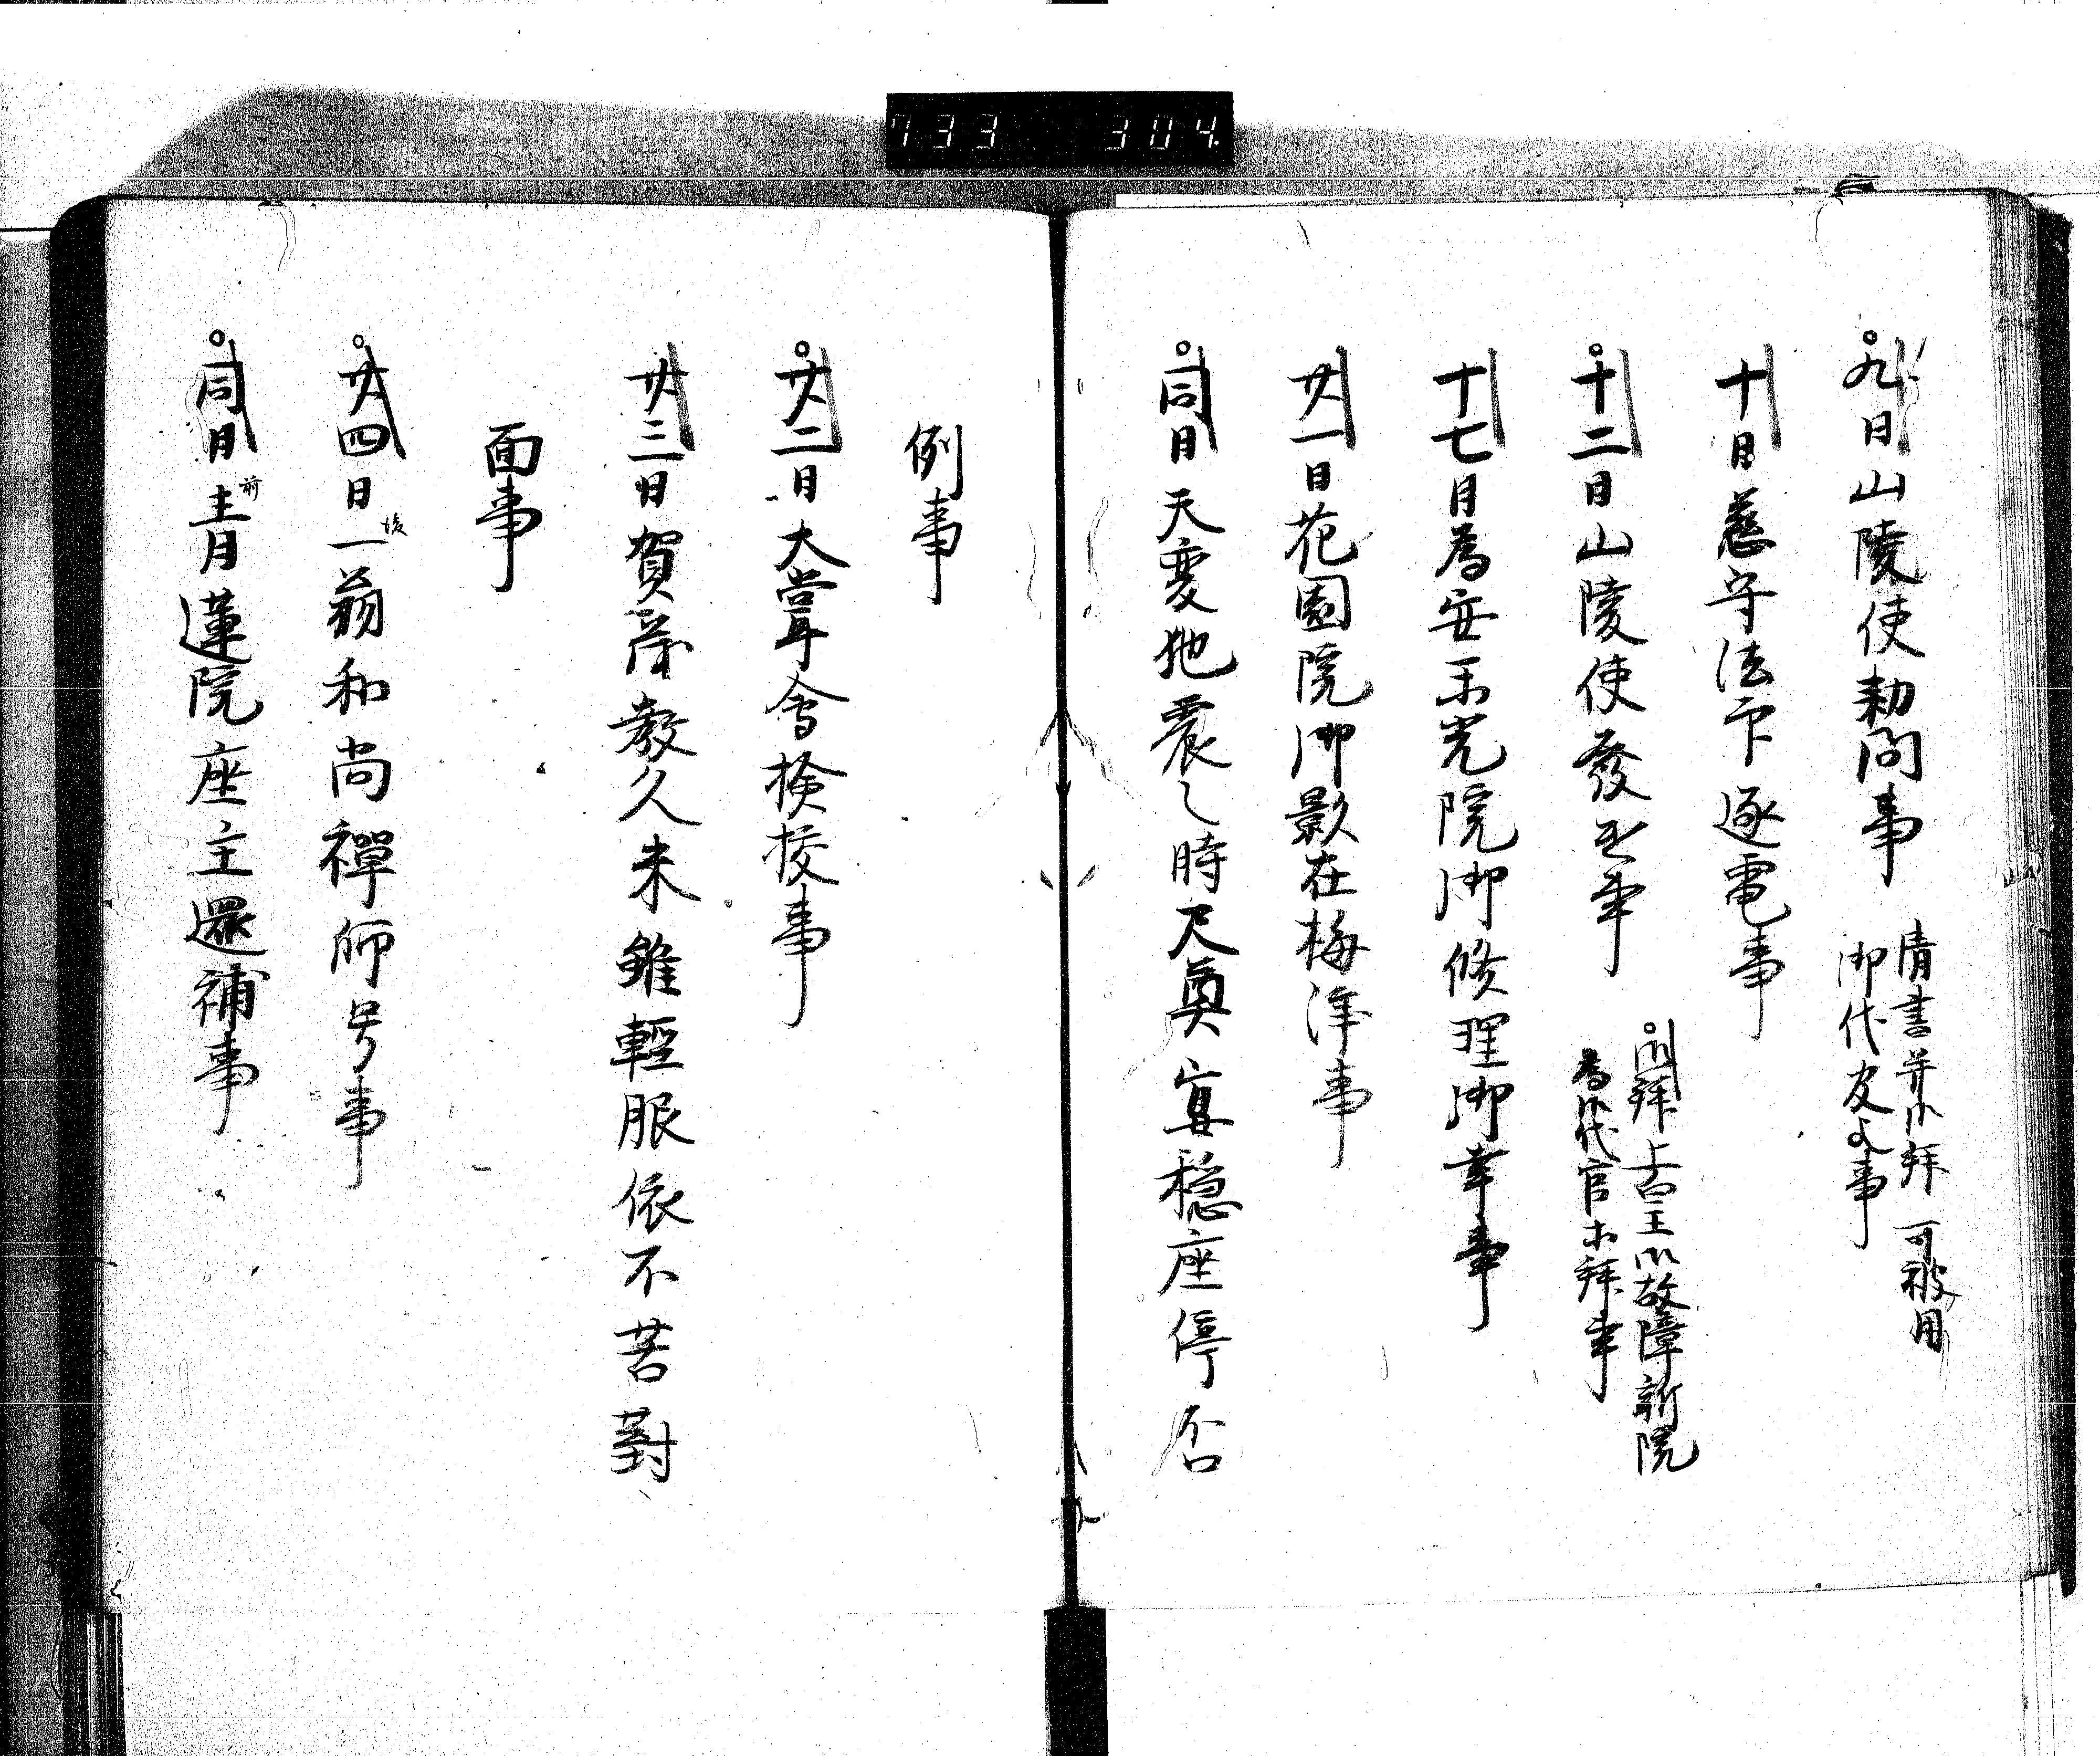 733 304
九日山陵使勅問事
清書并御拝可被用
御代友文事
十日慈守法印逐電事
十二日山陵使發遣事
御拜上皇御故障新院
為御代官御拜事
十七日為安楽光院御修理御幸事
廿一日花園院御影在梅津事
同日天變地震之時尺奠宴穏座停否
例事
廿二日大嘗會検校事
廿三日賀茂教久未雖輕服依不苦對
面事
廿四日後一翁和尚禪師号事
同日前青蓮院座主還補事